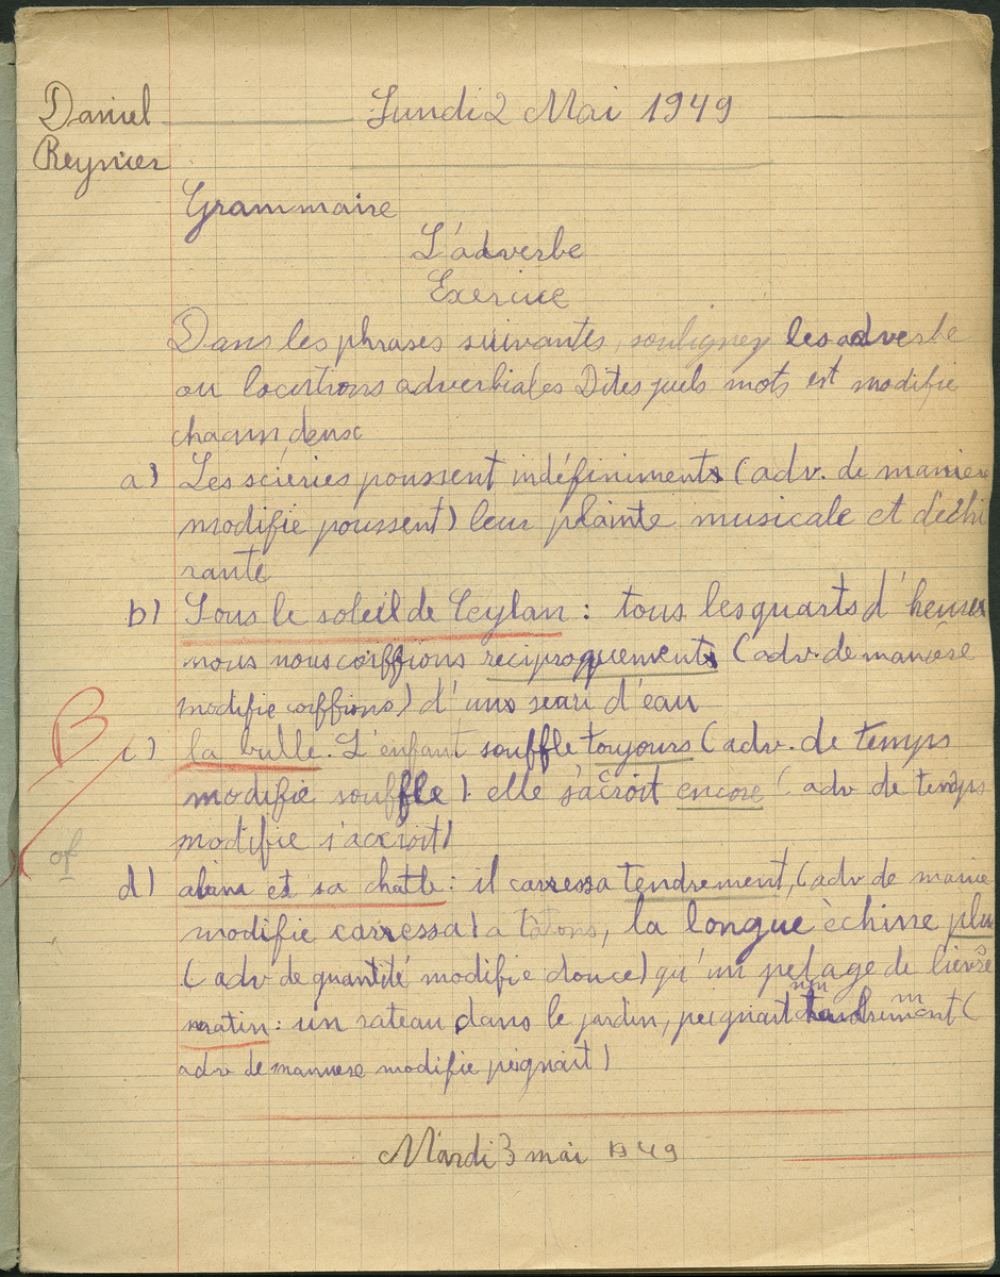 Daniel
Reynier
Lundi 2 Mai 1949
Grammaire
L'adverbe
Exercice
Dans les phrases suivantes, soulignez les adverbe
ou locutions adverbiales Dites quels mots est modifie
chacun deux
a) Les scieries poussent indéfiniments (adv. de maniere
modifie poussent) leur plainte musicale et déchi
rante
b) Sous le soleil de Ceylan : tous les quarts d'heures
nous nous coiffions réciproquements (adv. de manière
modifie coiffions) d'un seau d'eau
c) la bulle. L'enfant souffle toujours (adv. de temps
modifie souffle) elle s'acroit encore (adv de temps
modifie s'accroit)
B
of
d) et sa chatte : il carressa tendrement, (adv de manie
modifie carressa) a tâtons, la longue èchine plus
(adv de quantité modifie douce) qu'un pelage de lièvre
matin : un rateau dans le jardin, peignait (
adv de maniere modifie peignait)
Mardi 3 mai 1949